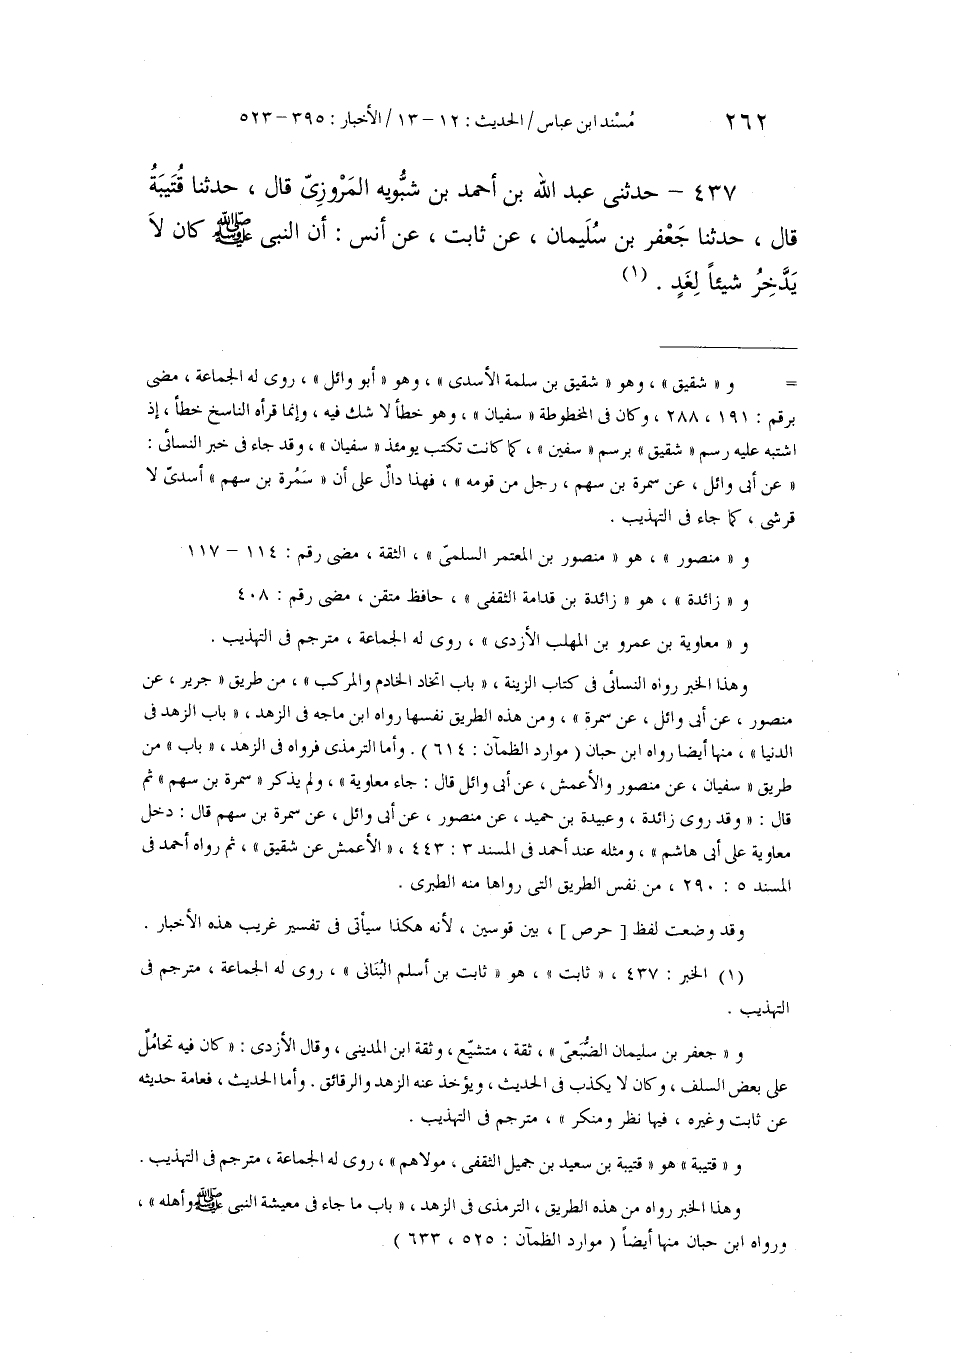 ٢٦٢ مُسْند ابن عباس / الحديث : ١٢ – ١٣ / الأخبار : ٣٩٥ – ٥٢٣
٤٣٧ – حدثنى عبد الله بن أحمد بن شبُّويه المَرْوزِىّ قال ، حدثنا قُتَيبَةُ
قال ، حدثنا جَعْفر بن سُلَيمان ، عن ثابت ، عن أنس : أن النبى ﷺ كان لاَ
يَدَّخِرُ شيئاً لِغَدٍ . (١)
= و « شقيق » ، وهو « شقيق بن سلمة الأسدى » ، وهو « أبو وائل » ، روى له الجماعة ، مضى
برقم : ١٩١ ، ٢٨٨ ، وكان فى المخطوطة « سفيان » ، وهو خطأ لا شك فيه ، وإنما قرأه الناسخ خطأ ، إذ
اشتبه عليه رسم « شقيق » برسم « سفين » ، كما كانت تكتب يومئذ « سفيان » ، وقد جاء فى خبر النسائى :
« عن أبى وائل ، عن سمرة بن سهم ، رجل من قومه » ، فهذا دالٌ على أن « سَمُرة بن سهم » أسدىّ لا
قرشى ، كما جاء فى التهذيب .
و « منصور » ، هو « منصور بن المعتمر السلمىّ » ، الثقة ، مضى رقم : ١١٤ – ١١٧
و « زائدة » ، هو « زائدة بن قدامة الثقفى » ، حافظ متقن ، مضى رقم : ٤٠٨
و « معاوية بن عمرو بن المهلب الأزدى » ، روى له الجماعة ، مترجم فى التهذيب .
وهذا الخبر رواه النسائى فى كتاب الزينة ، « باب اتخاد الخادم والمركب » ، من طريق « جرير ، عن
منصور ، عن أبى وائل ، عن سمرة » ، ومن هذه الطريق نفسها رواه ابن ماجه فى الزهد ، « باب الزهد فى
الدنيا » ، منها أيضا رواه ابن حبان ( موارد الظمآن : ٦١٤ ) . وأما الترمذى فرواه فى الزهد ، « باب » من
طريق « سفيان ، عن منصور والأعمش ، عن أبى وائل قال : جاء معاوية » ، ولم يذكر « سمرة بن سهم » ثم
قال : « وقد روى زائدة ، وعبيدة بن حميد ، عن منصور ، عن أبى وائل ، عن سمرة بن سهم قال : دخل
معاوية على أبى هاشم » ، ومثله عند أحمد فى المسند ٣ : ٤٤٣ ، « الأعمش عن شقيق » ، ثم رواه أحمد فى
المسند ٥ : ٢٩٠ ، من نفس الطريق التى رواها منه الطبرى .
وقد وضعت لفظ [ حرص ] ، بين قوسين ، لأنه هكذا سيأتى فى تفسير غريب هذه الأخبار .
(١) الخبر : ٤٣٧ ، « ثابت » ، هو « ثابت بن أسلم البُنَانى » ، روى له الجماعة ، مترجم فى
التهذيب .
و « جعفر بن سليمان الضُّبَعىّ » ، ثقة ، متشيّع ، وثقة ابن المدينى ، وقال الأزدى : « كان فيه تحامُلٌ
على بعض السلف ، وكان لا يكذب فى الحديث ، ويؤخذ عنه الزهد والرقائق . وأما الحديث ، فعامة حديثه
عن ثابت وغيره ، فيها نظر ومنكر » ، مترجم فى التهذيب .
و « قتيبة » هو « قتيبة بن سعيد بن جميل الثقفى ، مولاهم » ، روى له الجماعة ، مترجم فى التهذيب .
وهذا الخبر رواه من هذه الطريق ، الترمذى فى الزهد ، « باب ما جاء فى معيشة النبى ﷺ وأهله » ،
ورواه ابن حبان منها أيضاً ( موارد الظمآن : ٥٢٥ ، ٦٣٣ )